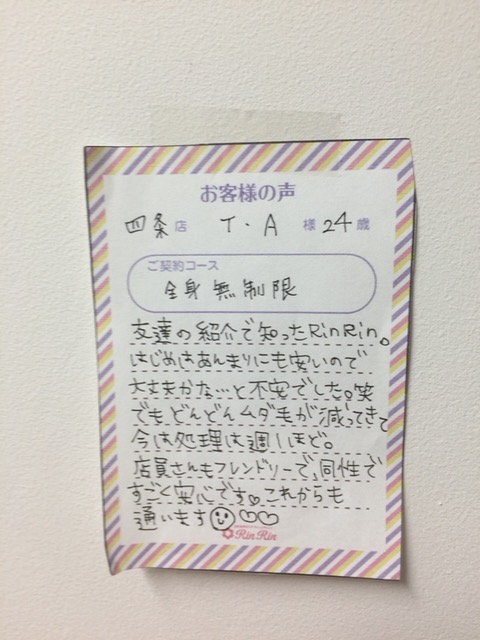 お客様の声
四条店 T・A 様 24歳
ご契約コース
全身無制限
友達の紹介で知ったRinRin。
はじめはあんまりにも安いので
大丈夫かな…と不安でした。笑
でもどんどんムダ毛が減ってきて
今は処理は週1ほど。
店員さんもフレンドリーで、同性で
すごく安心です♡これからも
通います☺♡♡
RinRin